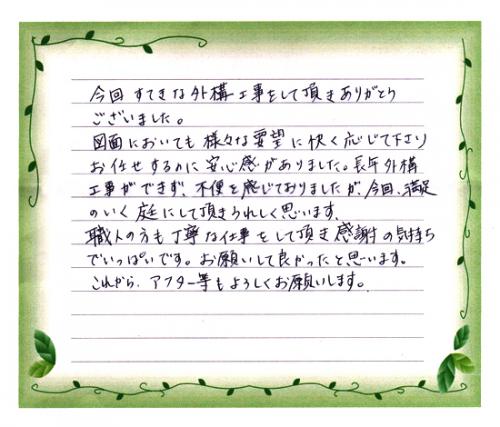 今回 すてきな外構工事をして頂きありがとう
ございました。
図面においても 様々な要望に 快く応じて下さり
お任せするのに 安心感がありました。長年 外構
工事ができず、不便を感じておりましたが、今回、満足
のいく 庭にして頂きうれしく思います。
職人の方も丁寧な仕事をして頂き感謝の気持ち
でいっぱいです。お願いして良かったと思います。
これから、アフター等もよろしくお願いします。